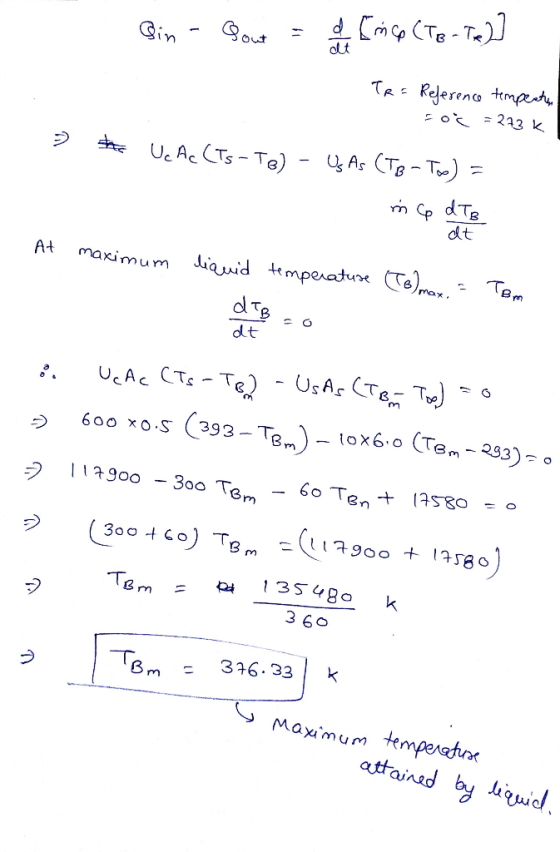 Qin - Qout = d/dt [ṁ cp (TB - TR)]
TR = Reference temperature
= 0°C = 273 K
⇒ UcAc (Ts - TB) - UsAs (TB - T∞) =
ṁ cp dTB/dt
At maximum liquid temperature (TB)max. = TBm
dTB/dt = 0
∴ UcAc (Ts - TBm) - UsAs (TBm - T∞) = 0
⇒ 600 x0.5 (393 - TBm) - 10x6.0 (TBm - 293) = 0
⇒ 117900 - 300 TBm - 60 TBm + 17580 = 0
⇒ (300 + 60) TBm = (117900 + 17580)
⇒ TBm = 135480/360 K
⇒ TBm = 376.33 K
Maximum temperature
attained by liquid.